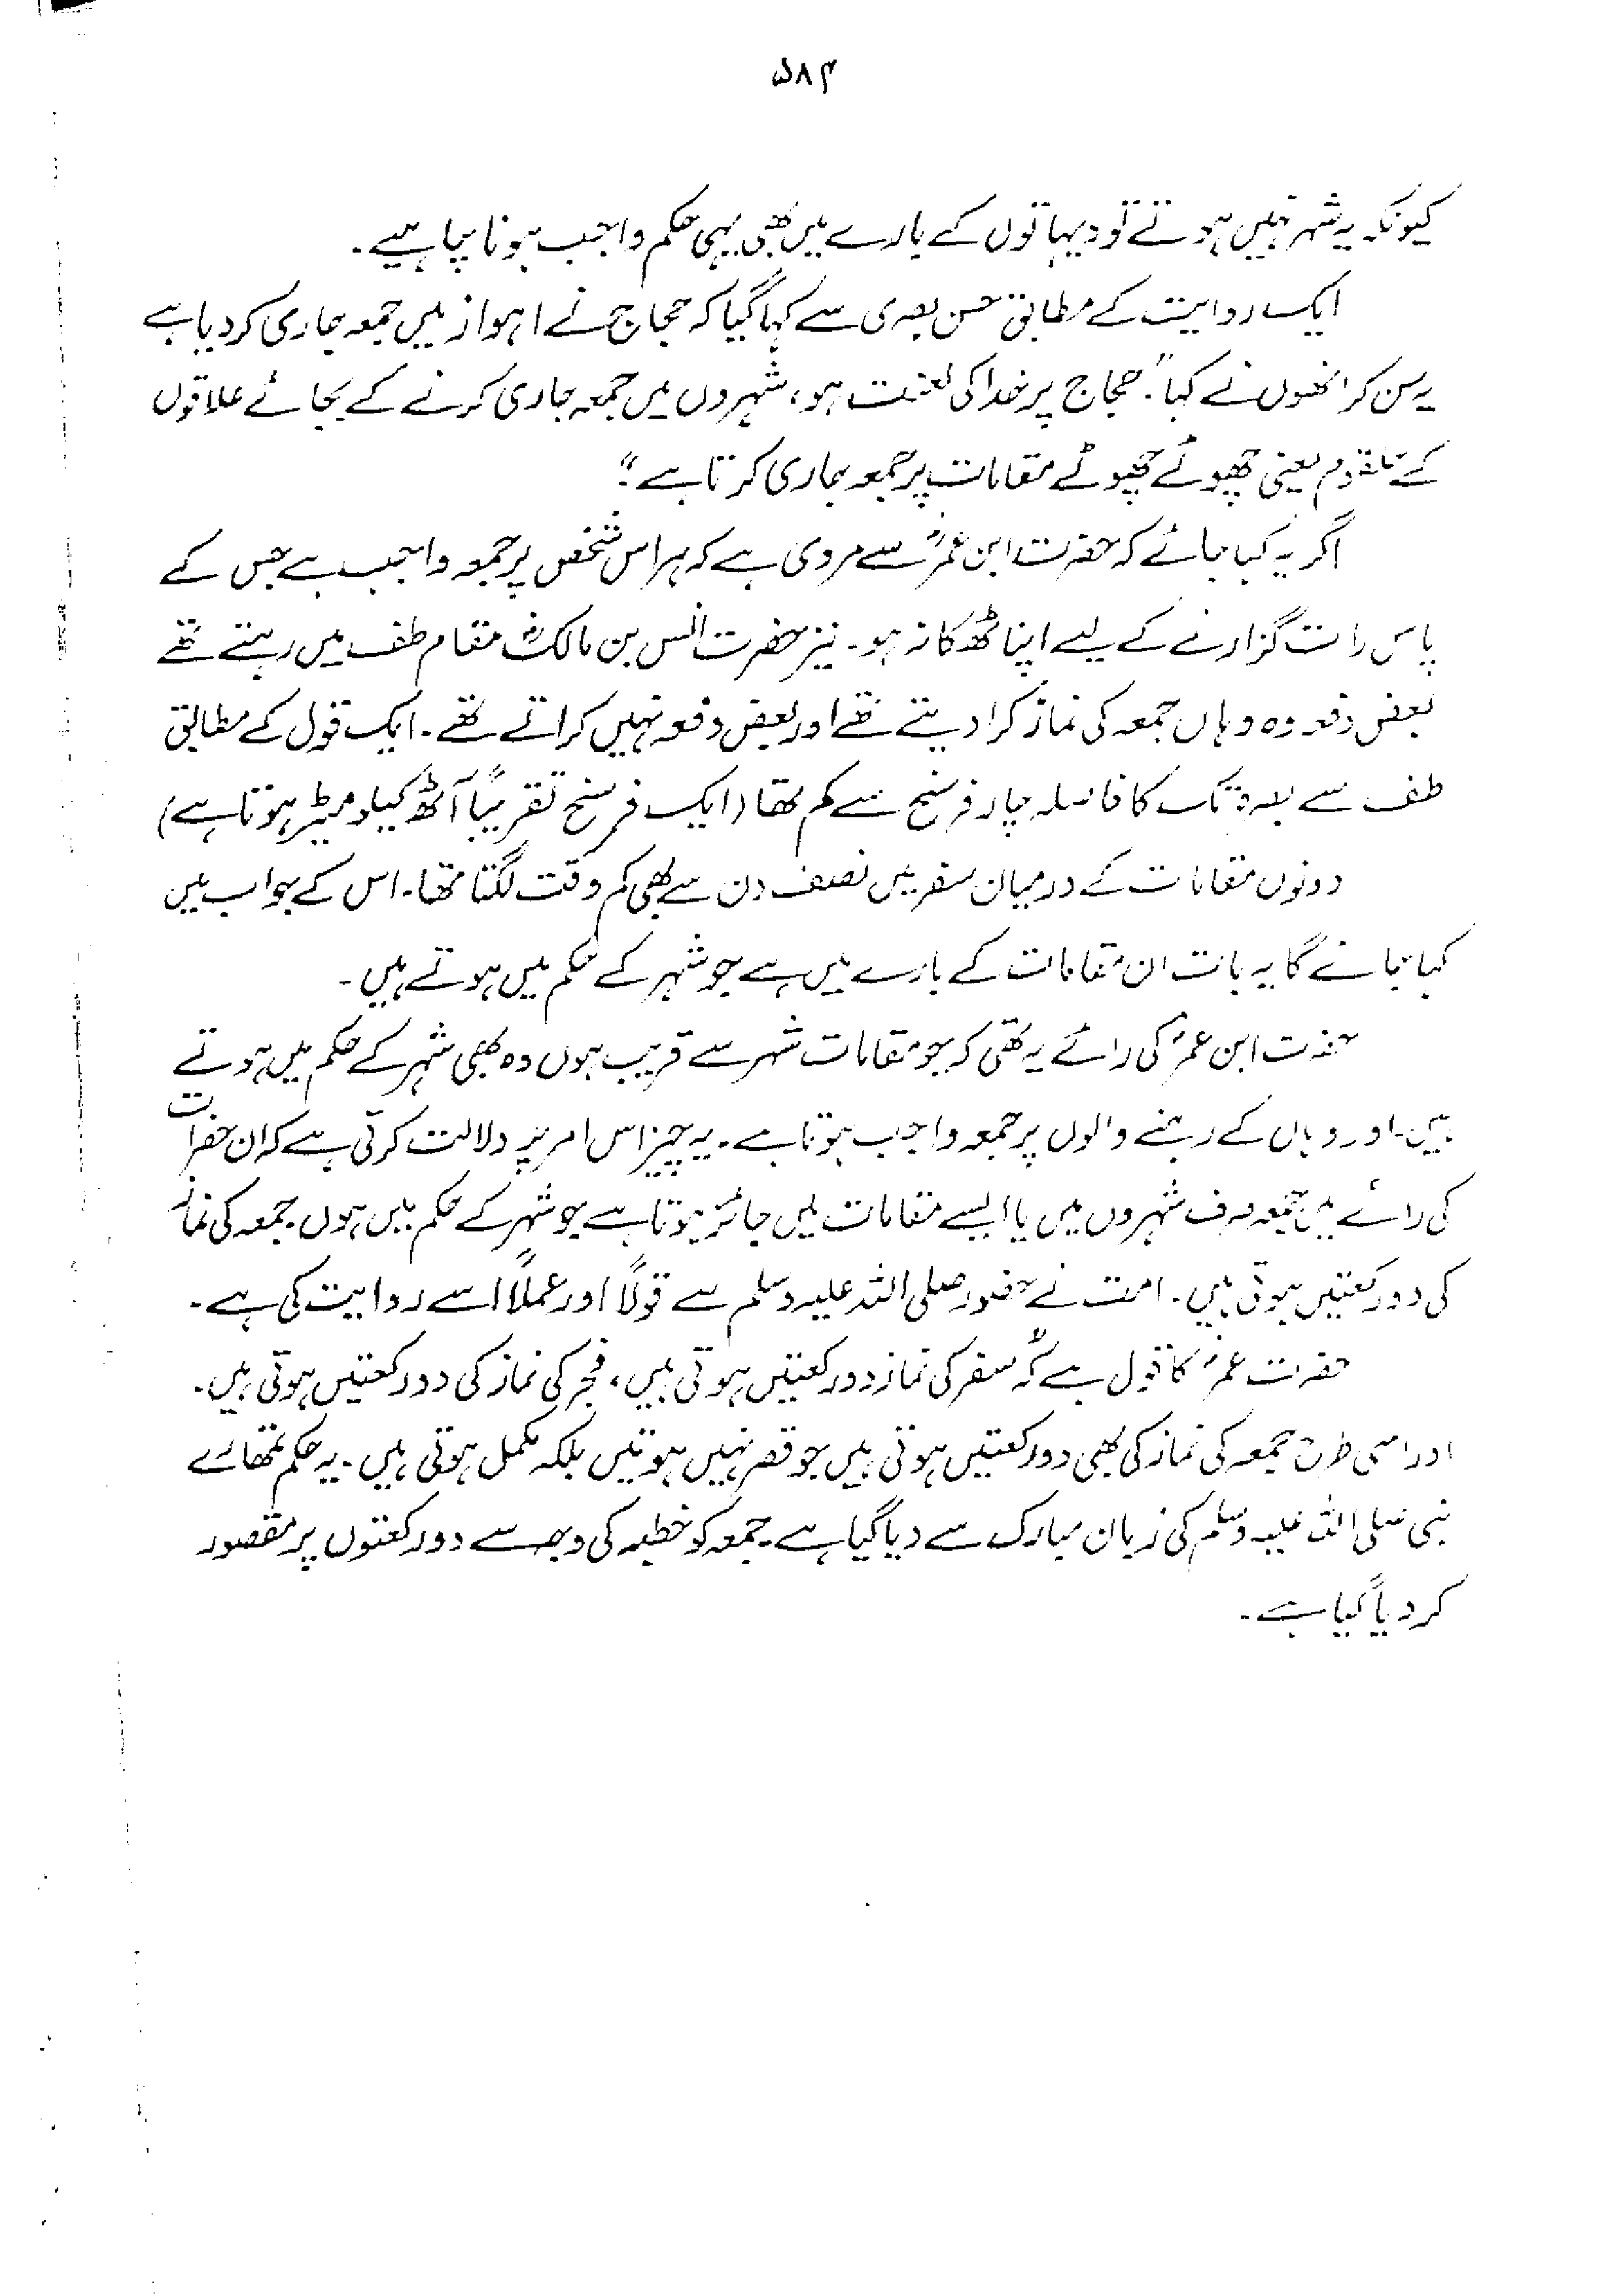 ۵۸۴
کیونکہ یہ شہر نہیں ہوتے تو دیہاتوں کے بارے میں بھی یہی حکم واجب ہونا چاہیے۔
ایک روایت کے مطابق حسن بصری سے کہا گیا کہ حجاج نے اہواز میں جمعہ جاری کردیا ہے
یہ سن کر انھوں نے کہا "حجاج پر خدا کی لعنت ہو، شہروں میں جمعہ جاری کرنے کے بجائے علاقوں
کے حلقوم یعنی چھوٹے چھوٹے مقامات پر جمعہ جاری کرتا ہے"
اگر یہ کہا جائے کہ حضرت ابن عمرؓ سے مروی ہے کہ ہر اس شخص پر جمعہ واجب ہے جس کے
پاس رات گزارنے کے لیے اپنا ٹھکانہ ہو۔ نیز حضرت انس بن مالکؓ مقام طف میں رہتے تھے
بعض دفعہ وہ وہاں جمعہ کی نماز کرا دیتے تھے اور بعض دفعہ نہیں کراتے تھے۔ ایک قول کے مطابق
طف سے بصرہ تک کا فاصلہ چار فرسخ سے کم تھا (ایک فرسخ تقریباً آٹھ کیلومیٹر ہوتا ہے)
دونوں مقامات کے درمیان سفر میں نصف دن سے بھی کم وقت لگتا تھا۔ اس کے جواب میں
کہا جائے گا یہ بات ان مقامات کے بارے میں ہے جو شہر کے حکم میں ہوتے ہیں۔
حضرت ابن عمرؓ کی رائے یہ تھی کہ جو مقامات شہر سے قریب ہوں وہ بھی شہر کے حکم میں ہوتے
ہیں۔ اور وہاں کے رہنے والوں پر جمعہ واجب ہوتا ہے۔ یہ چیز اس امر پر دلالت کرتی ہے کہ ان حضرات
کی رائے میں جمعہ صرف شہروں میں یا ایسے مقامات میں جائز ہوتا ہے جو شہر کے حکم میں ہوں۔ جمعہ کی نماز
کی دو رکعتیں ہوتی ہیں۔ امت نے حضور صلی اللہ علیہ وسلم سے قولاً اور عملاً اسے روایت کی ہے۔
حضرت عمرؓ کا قول ہے کہ "سفر کی نماز دو رکعتیں ہوتی ہیں، فجر کی نماز کی دو رکعتیں ہوتی ہیں۔
اور اسی طرح جمعہ کی نماز کی بھی دو رکعتیں ہوتی ہیں جو قصر نہیں ہوتیں بلکہ مکمل ہوتی ہیں۔ یہ حکم تمھارے
نبی صلی اللہ علیہ وسلم کی زبان مبارک سے دیا گیا ہے۔ جمعہ کو خطبہ کی وجہ سے دو رکعتوں پر مقصور
کر دیا گیا ہے۔